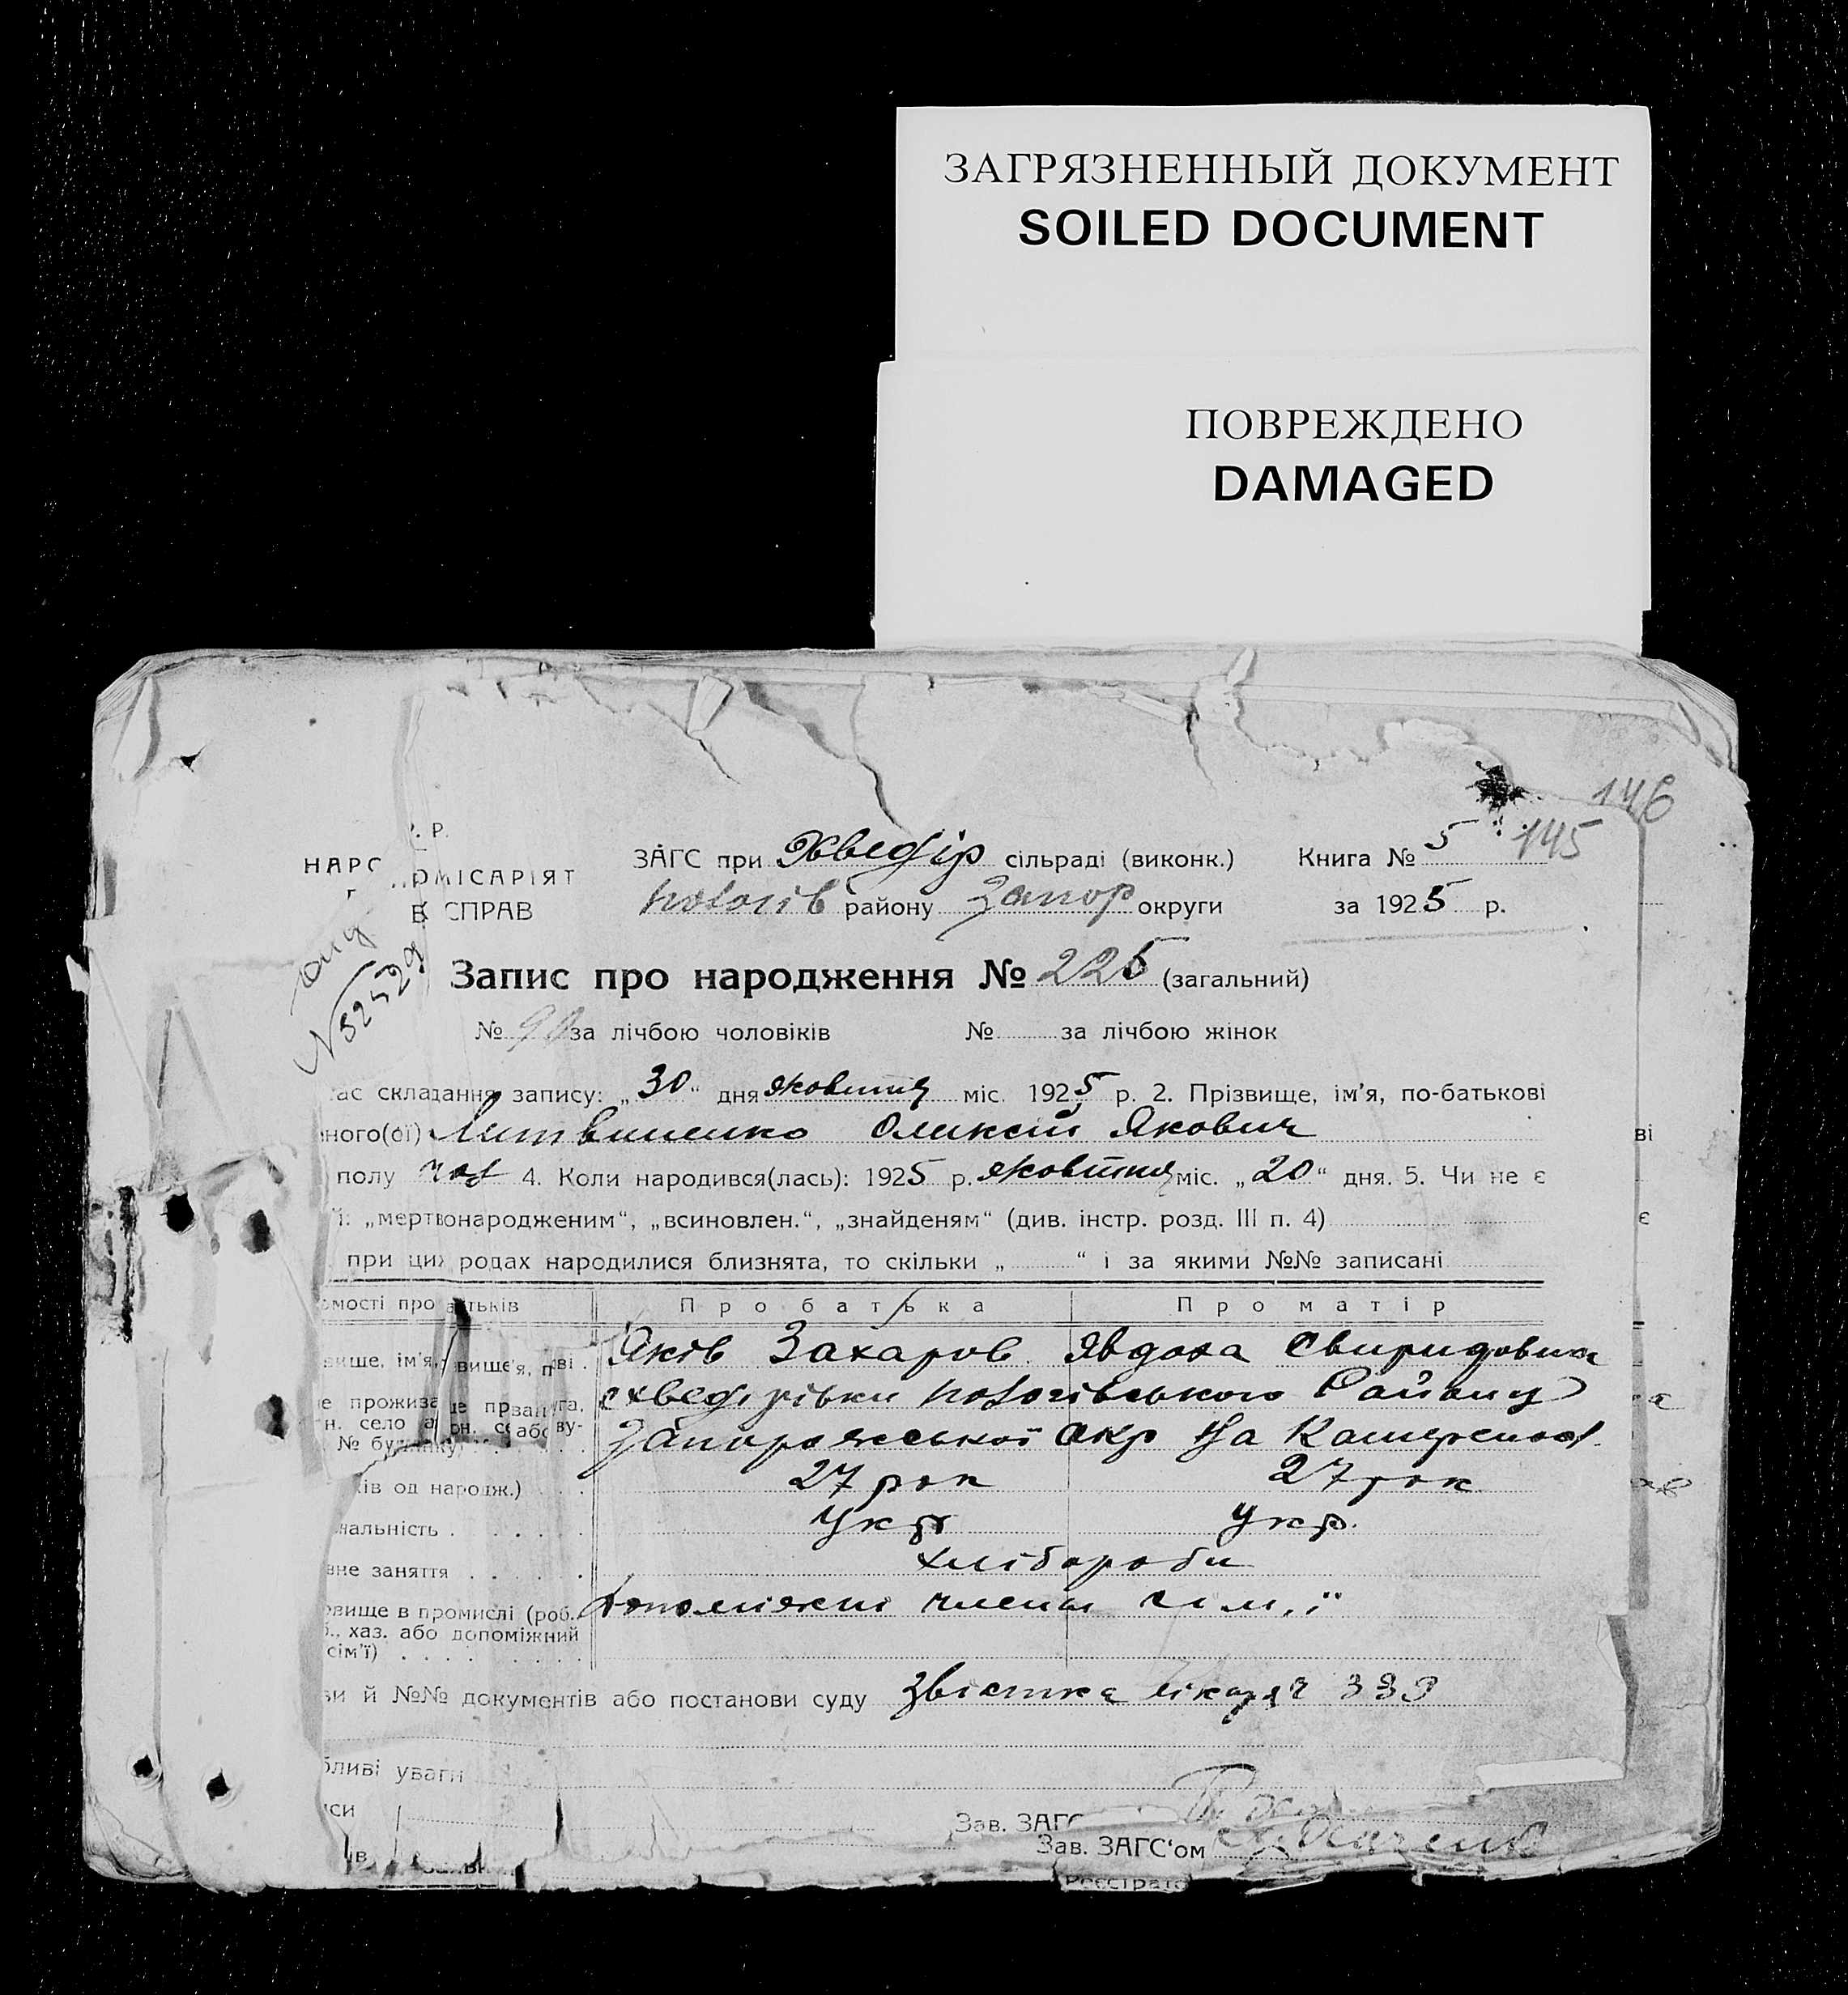 ЗАГРЯЗНЕННЫЙ ДОКУМЕНТ
SOILED DOCUMENT
ПОВРЕЖДЕНО
DAMAGED
146
145
. Р.
НАРО ОМІСАРІЯТ
СПРАВ
N 52529
ЗАГС при Хведір сільраді (виконк.) Книга № 5
Пологів району Запор округи за 1925 р.
Запис про народження № 225 (загальний)
№ 90 за лічбою чоловіків № за лічбою жінок
ас складання запису: „30“ дня жовтня міс. 1925 р. 2. Прізвище, ім'я, по-батькові
ного(ої) Литвиненко Оликсій Якович
полу чол 4. Коли народився(лась): 1925 р. жовтня міс. „20“ дня. 5. Чи не є
ї: „мертвонародженим“, „всиновлен.“, „знайденям“ (див. інстр. розд. III п. 4)
при цих родах народилися близнята, то скільки „ “ і за якими №№ записані
омості про батьків Про батька Про матір
вище, ім'я, Яків Захаров. Явдоха Свиридовна
е прожива Хведірівки Пологівського Району
н. село або ву-
№ будинку Запорожської Окр
27 рок 27 рок
ків од народж.)
нальність Укр Укр.
вне заняття хлібороби
овище в промислі (роб. Допоміжні члени сім,ї
., хаз. або допоміжний
сім'ї)
ви й №№ документів або постанови суду Звістка лікаря 339
бливі уваги
иси
Зав. ЗАГС
Зав. ЗАГС'ом
ів
Реєстрато